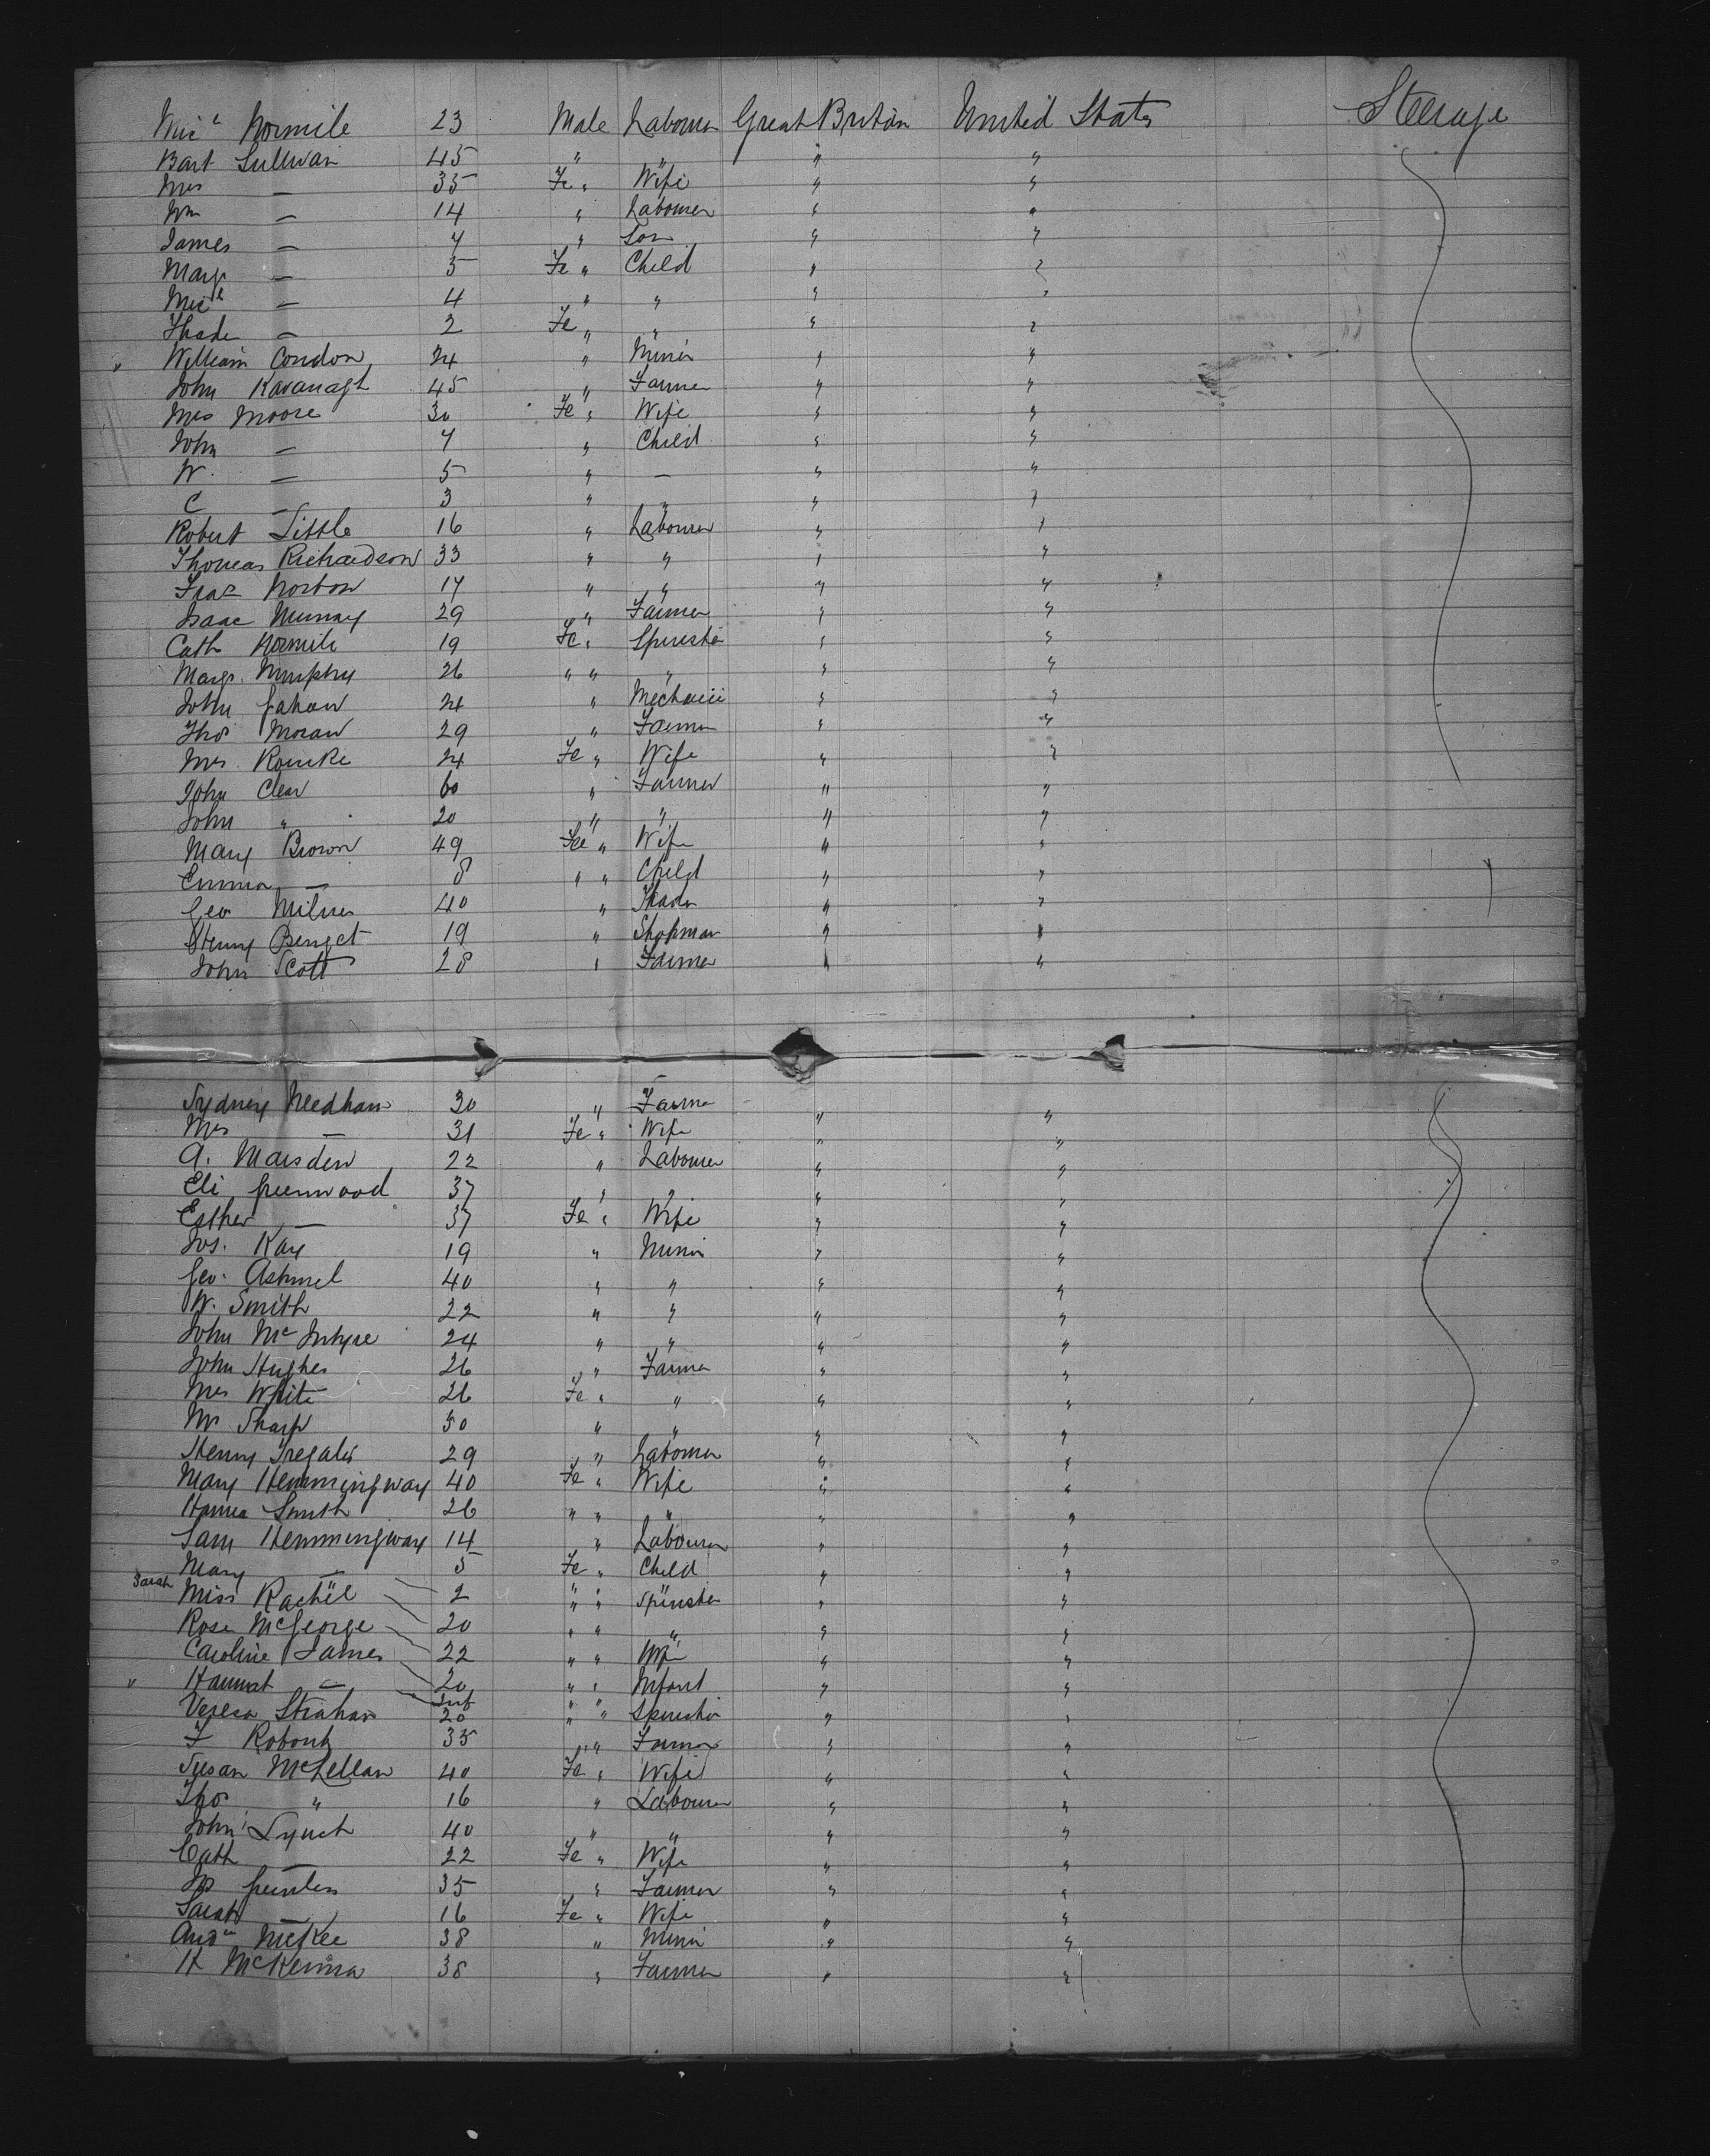 Mic^l Normile 23 Male Labourer Great Britain United States Steerage
Bart Sullivan 45 " " " "
Mrs — 35 Fe " Wife " "
Wm — 14 " Labourer " "
James — 7 " Son " "
Marg — 5 Fe " Child " "
Mic^l — 4 " " " "
— 2 Fe " " " "
William Condon 24 " Miner " "
John Kavanagh 45 " Farmer " "
Mrs Moore 30 Fe " Wife " "
John — 7 " Child " "
W. — 5 " — " "
C — 3 " " " "
Robert Little 16 " Labourer " "
Thomas Richardson 33 " " " "
Norton 17 " " " "
Isaac Murray 29 " Farmer " "
Cath Normile 19 Fe " Spinster " "
Margr. Murphy 26 " " " " "
John Gahan 24 " Mechanic " "
Thos Moran 29 " Farmer " "
Mrs Rourke 24 Fe " Wife " "
John Clear 60 " Farmer " "
John " 20 " " " "
Mary Brown 49 Fe " Wife " "
Emma — 8 " " Child " "
Geo Milner 40 " " "
Henry 19 " Shopman " "
John Scott 28 " Farmer " "
Sydney Needham 30 " Farmer " "
Mrs — 31 Fe " Wife " "
A. Marsden 22 " Labourer " "
Eli Greenwood 37 " " " "
Esther — 37 Fe " Wife " "
Jos. Kay 19 " Miner " "
Geo. 40 " " " "
W. Smith 22 " " " "
John McIntyre 24 " " " "
John Hughes 26 " Farmer " "
Mrs White 26 Fe " " " "
Mr Sharp 50 " " " "
Henry 29 " Labourer " "
Mary Hemmingway 40 Fe " Wife " "
Smith 26 " " " " "
Sam Hemmingway 14 " Labourer " "
Mary — 5 Fe " Child " "
Sarah
Miss Rachel 2 " " Spinster " "
Rose McGeorge 20 " " " " "
Caroline James 22 " " Wife " "
Hannah — 20 " " Infant " "
Inf
Strahan 20 " " Spinster " "
F 35 " " Farmer " "
Susan McLellan 40 Fe " Wife " "
Thos " 16 " Labourer " "
John Lynch 40 " " " "
Cath — 22 Fe " Wife " "
35 " Farmer " "
Sarah — 16 Fe " Wife " "
And^w McKee 38 " Miner " "
H McKenna 38 " Farmer " "